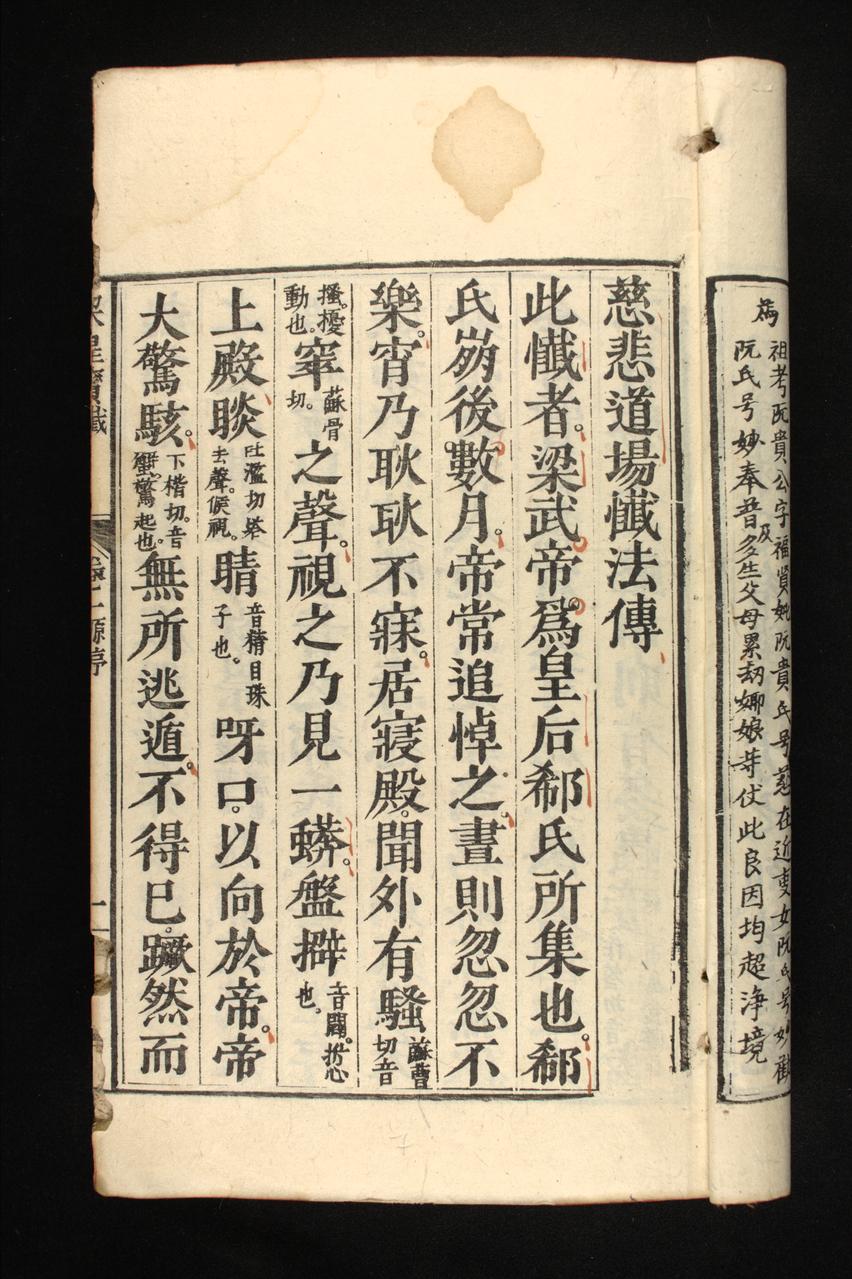 爲
祖考阮貴公字福賢妣阮貴氏号慈在近事女阮氏号妙
及
阮氏号妙奉普多生父母累劫娜娘等仗此良因均超淨境
慈悲道場懺法傳
此懺者。梁武帝。爲皇后郗氏所集也。郗
氏崩後。數月。帝常追悼之。晝則忽忽不
樂。宵乃耿耿不寐。居寢殿。聞外有騷蘇曹切音
搔。擾動也。窣蘇骨切。之聲。視之乃見一蟒。盤擗音闢。拊心也。
上殿睒吐濫切塔去聲。候視。睛音精目珠子也。呀口。以向於帝。帝
大驚駭。下楷切。音蟹。驚起也。無所逃遁。不得巳。蹶然而
皇寶懺
一源序